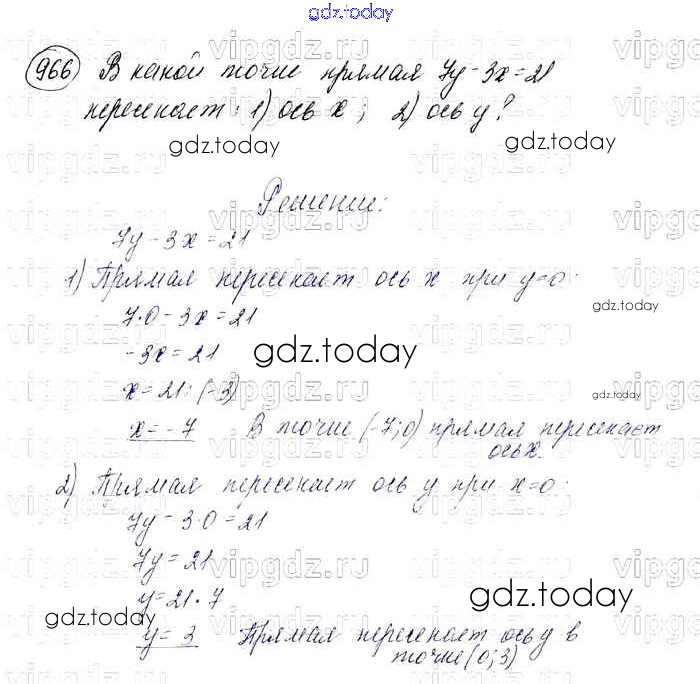 gdz.today
966 В какой точке прямая 7y - 3x = 21
пересекает: 1) ось x; 2) ось y?
gdz.today
Решение:
7y - 3x = 21
1) Прямая пересекает ось x при y=0.
7·0 - 3x = 21
gdz.today
-3x = 21
gdz.today
x = 21 : (-3)
x = -7 В точке (-7; 0) прямая пересекает
ось x.
2) Прямая пересекает ось y при x=0.
7y - 3·0 = 21
7y = 21
y = 21 · 7
gdz.today
gdz.today
y = 3 Прямая пересекает ось y в
точке (0; 3)
vipgdz.ru